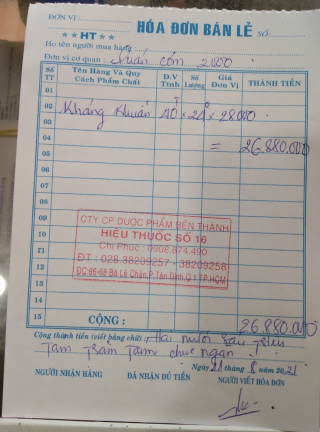 ĐƠN VỊ :
HÓA ĐƠN BÁN LẺ SỐ
★★ HT ★★
Họ tên người mua hàng
Đơn vị cơ quan : 2000
Số TT Tên Hàng Và Quy Cách Phẩm Chất Đ.V Tính Số Lượng Giá Đơn Vị THÀNH TIỀN
01
02 Kháng Khuẩn 40 × 24 × 28000
03
04 = 26.880.000
05
06
07
08
09
10
CTY CP DƯỢC PHẨM BẾN THÀNH
HIỆU THUỐC SỐ 16
Chi Phúc : 0908.874.490
ĐT : 028.38209257 - 38209258
ĐC:66-68 Bà Lê Chân,P.Tân Định,Q.1,TP.HCM
11
12
13
14
15 CỘNG : 26.880.000
Cộng thành tiền (viết bằng chữ) : Hai mươi sáu triệu
Tám Trăm Tám chục ngàn
Ngày 21 tháng 8 năm 2021
NGƯỜI NHẬN HÀNG ĐÃ NHẬN ĐỦ TIỀN NGƯỜI VIẾT HÓA ĐƠN